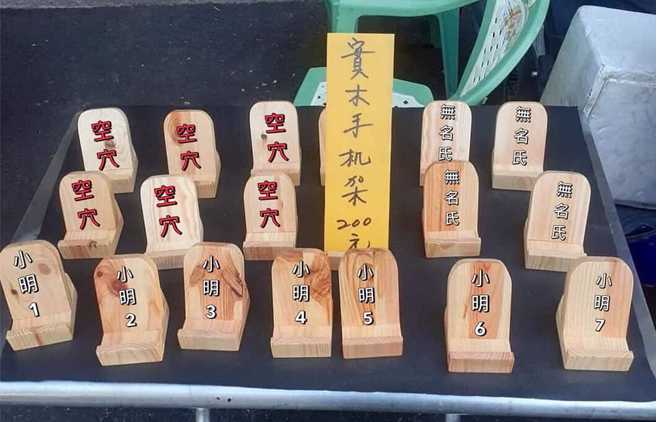 實木手机架
200元
空穴
空穴
空穴
無名氏
無名氏
空穴
空穴
空穴
無名氏
無名氏
小明1
小明2
小明3
小明4
小明5
小明6
小明7